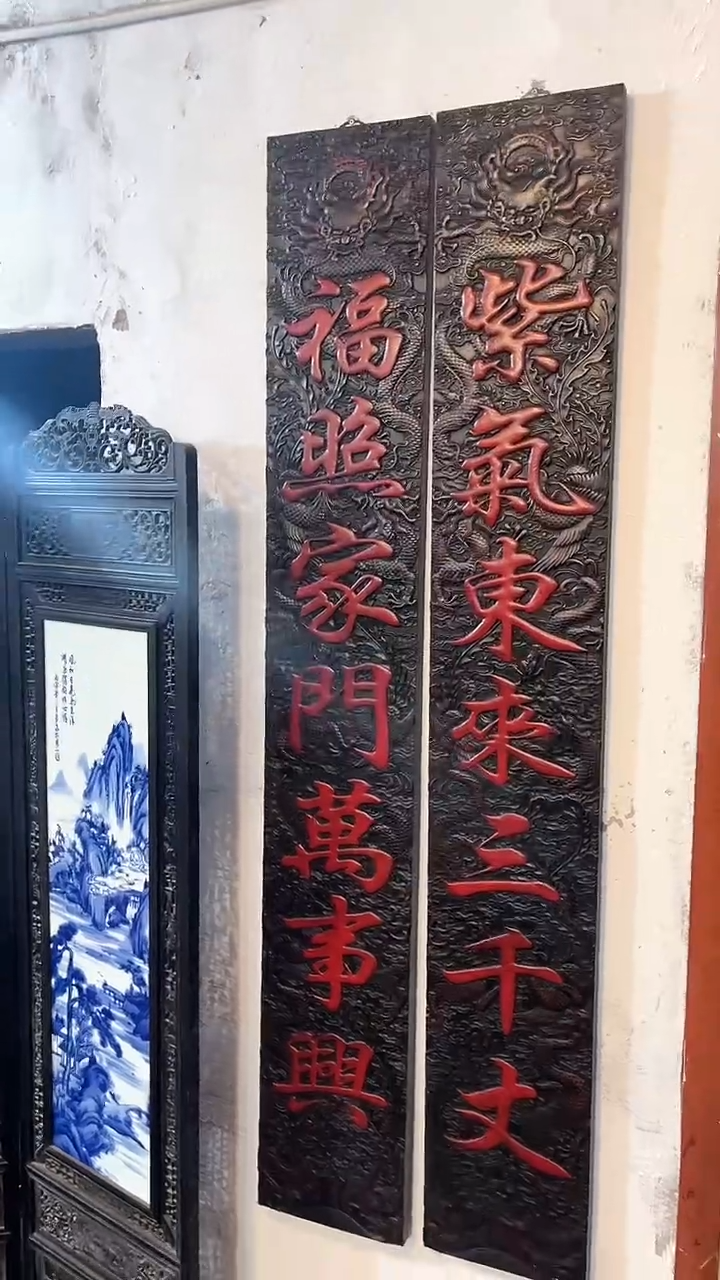 紫氣東來三千丈
福照家門萬事興